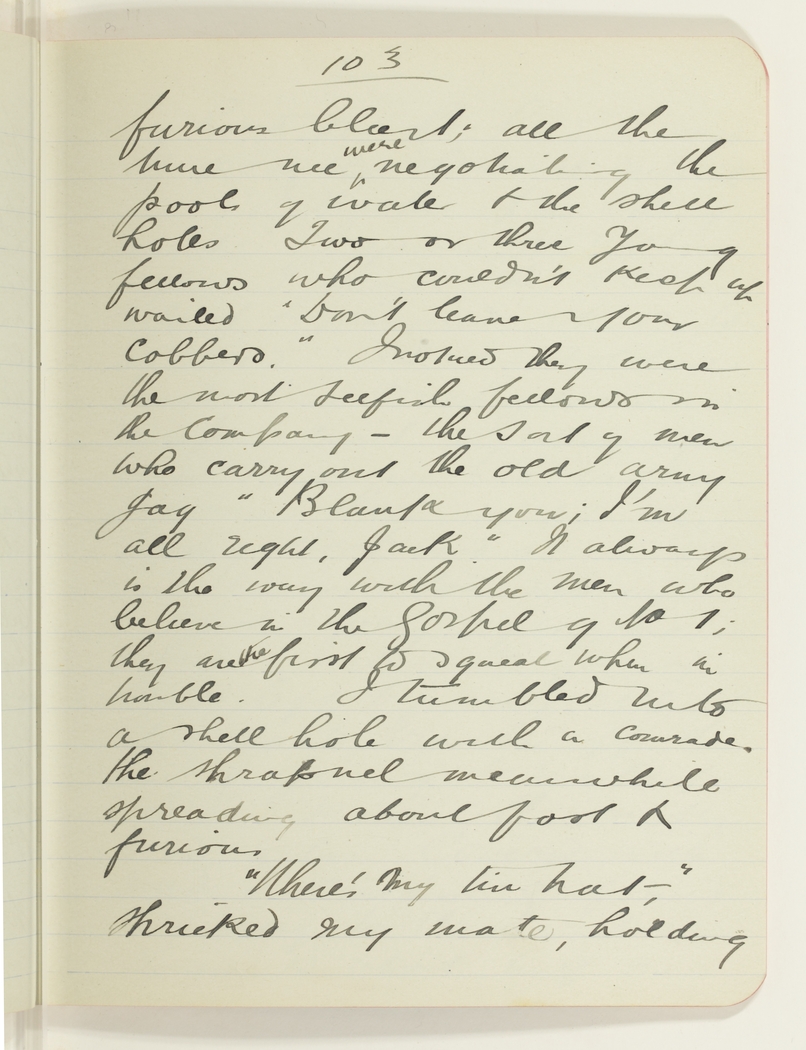 103
furious blast; all the
time we were negotiating the
pools of water & the shell
holes. Two or three Young
fellows who couldn't keep up
wailed "Don't leave your
cobbers." I noticed they were
the most selfish fellows in
the Company – the sort of men
who carry out the old army
gag "Blank you; I'm
all right, Jack" It always
is the way with the men who
believe in the Gospel of No 1;
they are the first to squeal when in
trouble. I tumbled into
a shell hole with a comrade.
the shrapnel meanwhile
spreading about fast &
furious
"Where's my tin hat,"
shrieked my mate, holding